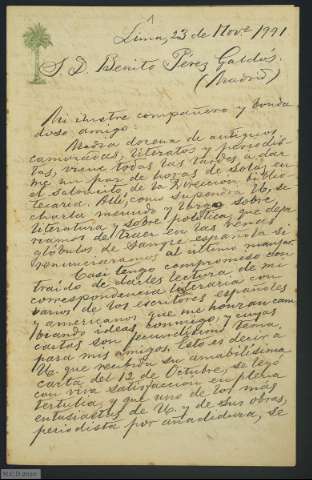 Lima, 23 de Nove 1901
S. D. Benito Pérez Galdós.
(Madrid)
Mi ilustre compañero y bonda
doso amigo:
Media docena de antiguos
camaradas, literatos y periodis-
tas, viene todas las tardes a dar
me un par de horas de solaz, en
el saloncito de la Dirección biblio-
tecaria. Allí, como supondrá U, se
charla menudo y largo sobre
literatura y sobre política, que deja
riamos de traer en las venas
glóbulos de sangre española si
renunciaramos al último manjar.
Casi tengo compromiso con
traído de darles lectura de mi
correspondencia literaria con
varios de los escritores españoles
y americanos que me honran cam
biando ideas conmigo, y cuyas
cartas son fecundísimo tema
para mis amigos. Esto es decir a
U. que recibida su amabilísima
carta del 12 de Octubre, se leyó
con viva satisfacción en plena
tertulia, y que uno de los más
entusiastas de U. y de sus obras,
periodista por añadidura, se